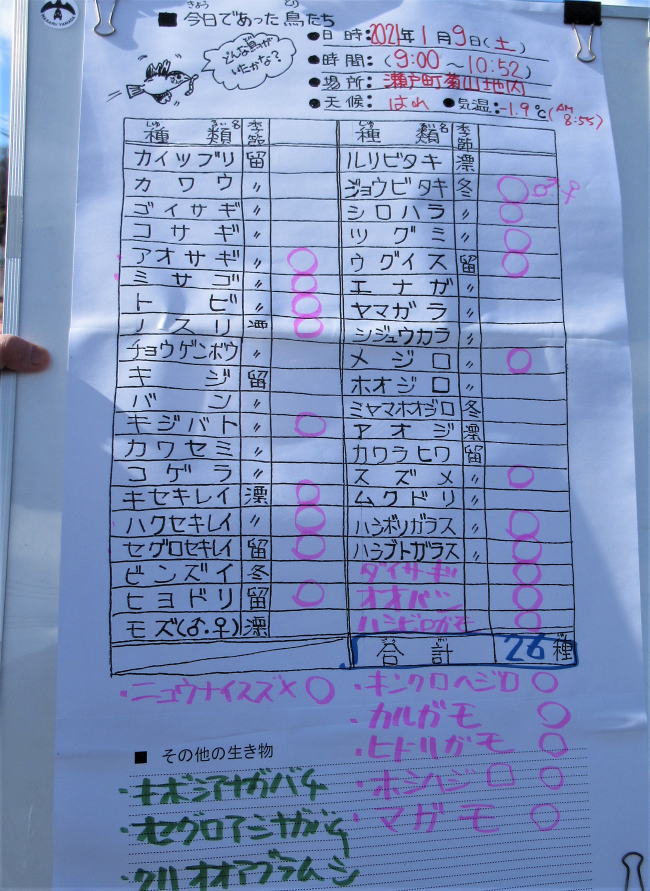 ■ 今日であった鳥たち
きょう とり
どんな鳥がいたかな?
●日時:2021年1月9日(土)
●時間:(9:00~10:52)
●場所:瀬戸町菊山地内
●天候:はれ ●気温:-1.9℃(AM 8:55)
種類名 季節 種類名 季節
カイツブリ 留 ルリビタキ 漂
カワウ 〃 ジョウビタキ 冬 ○♂♀
ゴイサギ 〃 シロハラ 〃 ○
コサギ 〃 ツグミ 〃 ○
アオサギ 〃 ○ ウグイス 留 ○
ミサゴ 〃 ○ エナガ 〃
トビ 〃 ○ ヤマガラ 〃
ノスリ 漂 ○ シジュウカラ 〃
チョウゲンボウ 〃 メジロ 〃 ○
キジ 留 ホオジロ 〃
バン 〃 ミヤマホオジロ 冬
キジバト 〃 ○ アオジ 漂
カワセミ 〃 カワラヒワ 留
コゲラ 〃 スズメ 〃 ○
キセキレイ 漂 ○ ムクドリ 〃
ハクセキレイ 〃 ○ ハシボソガラス 〃 ○
セグロセキレイ 留 ○ ハシブトガラス 〃 ○
ビンズイ 冬 ダイサギ ○
ヒヨドリ 留 ○ オオバン ○
モズ(♂.♀) 漂 ハシビロガモ ○
合計 26種
・ニュウナイスズメ ○ ・キンクロハジロ ○
・カルガモ ○
・ヒドリガモ ○
・ホシハジロ ○
・マガモ ○
■ その他の生き物
・キボシアナガバチ
・セグロアシナガバチ
・クリオオアブラムシ